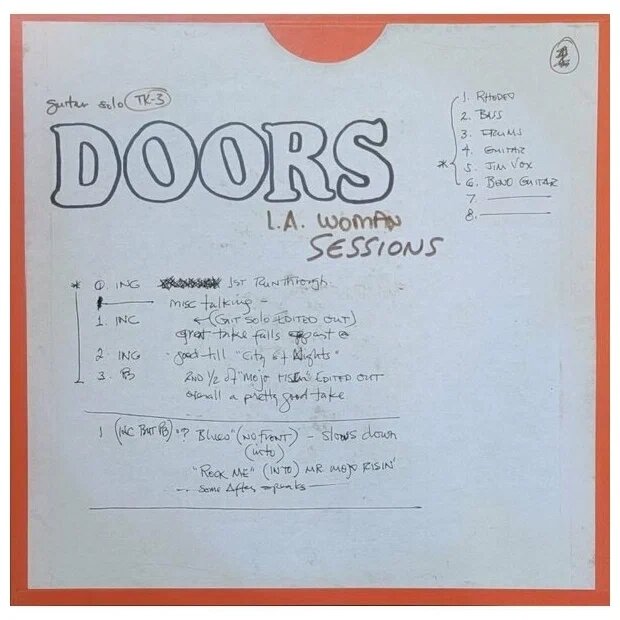 guitar solo TK-3
DOORS
L.A. WOMAN
SESSIONS
1. RHODES
2. BASS
3. DRUMS
4. GUITAR
* 5. JIM VOX
6. BEND GUITAR
7.
8.
* 0. ING 1ST RUNTHROUGH
misc talking -
1. INC (GIT SOLO EDITED OUT)
great take falls apart @
2 ING - good till "City of Nights"
3. B 2ND 1/2 of "Mojo RISIN" EDITED OUT
overall a pretty good take
1 (INC BUT PB) "? Blues" (NO FRONT) - slows down
(into)
"ROCK ME" (INTO) MR. MOJO RISIN'
- some After